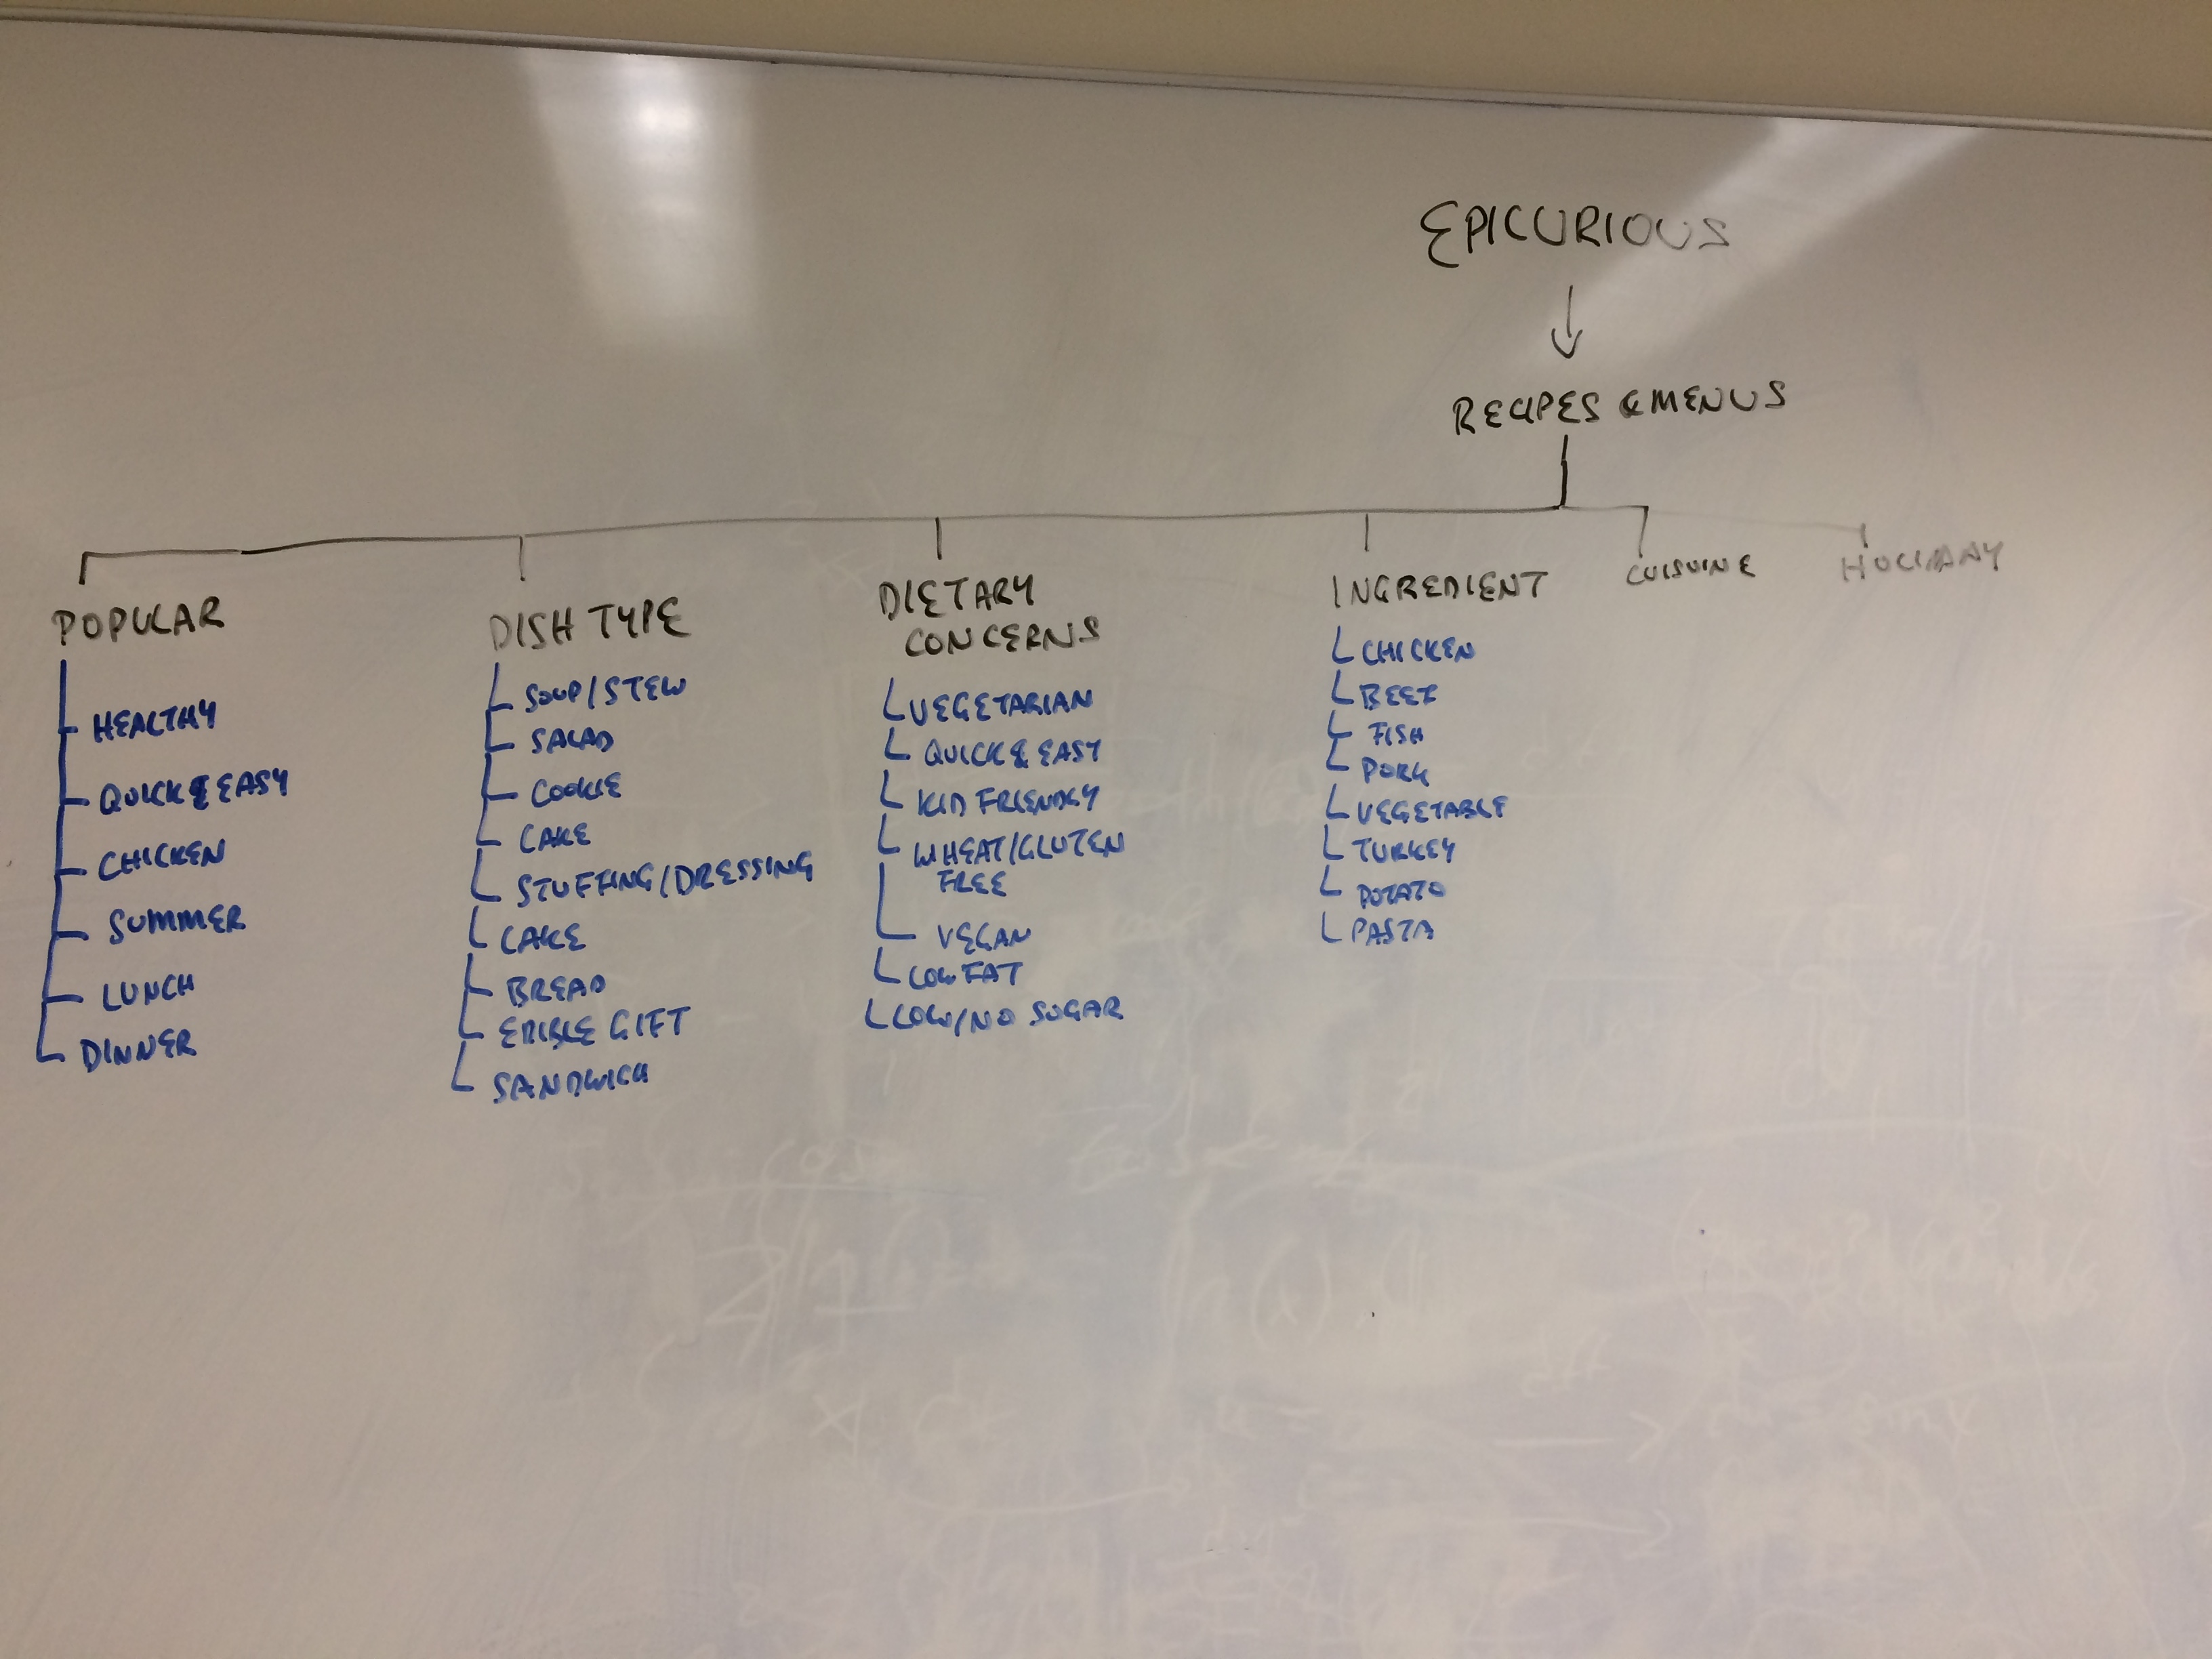 EPICURIOUS
RECIPES & MENUS
POPULAR
HEALTHY
QUICK & EASY
CHICKEN
SUMMER
LUNCH
DINNER
DISH TYPE
SOUP/STEW
SALAD
COOKIE
CAKE
STUFFING/DRESSING
CAKE
BREAD
EDIBLE GIFT
SANDWICH
DIETARY
CONCERNS
VEGETARIAN
QUICK & EASY
KID FRIENDLY
WHEAT/GLUTEN
FREE
VEGAN
LOW FAT
LOW/NO SUGAR
INGREDIENT
CHICKEN
BEEF
FISH
PORK
VEGETABLE
TURKEY
POTATO
PASTA
CUISUINE